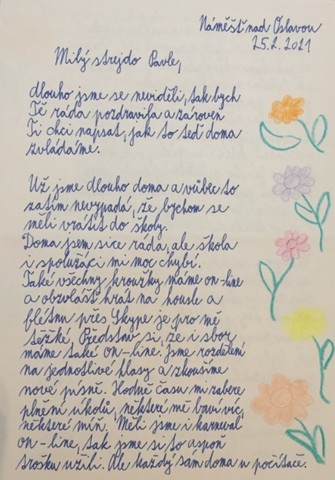 Náměšť nad Oslavou
25.2.2021
Milý strejdo Pavle,
dlouho jsme se neviděli, tak bych
Tě ráda pozdravila a zároveň
Ti chci napsat, jak to teď doma
zvládáme.
Už jsme dlouho doma a vůbec to
zatím nevypadá, že bychom se
měli vrátit do školy.
Doma jsem sice ráda, ale škola
i spolužáci mi moc chybí.
Také všechny kroužky máme on-line
a obzvlášť hrát na housle a
flétnu přes Skype je pro mě
těžké. Představ si, že i sbor
máme také on-line. Jsme rozděleni
na jednotlivé hlasy a zkoušíme
nové písně. Hodně času mi zabere
plnění úkolů, některé mě baví víc,
některé míň. Měli jsme i karneval
on-line, tak jsme si to aspoň
trošku užili. Ale každý sám doma u počítače.